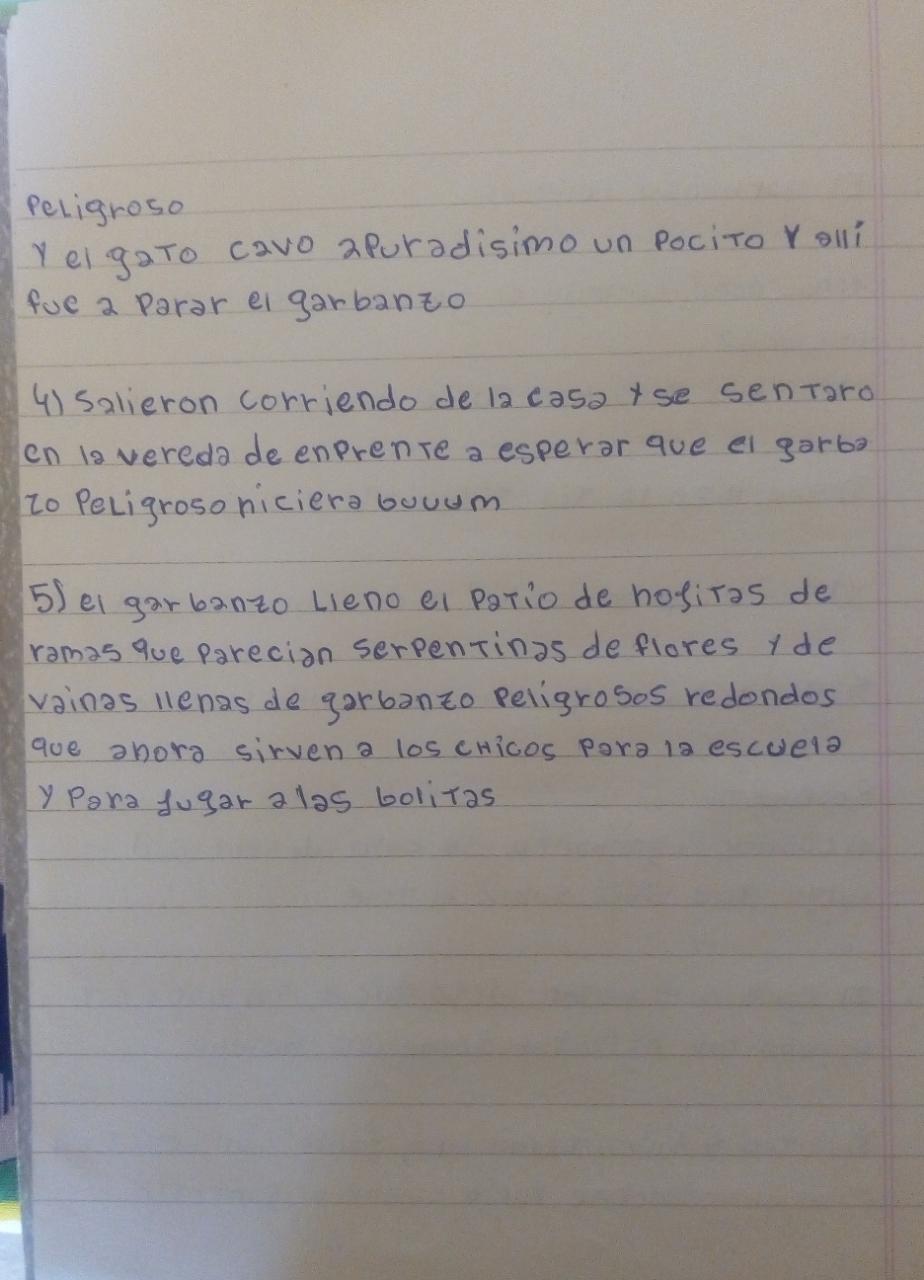 Peligroso
Y el gato cavo apuradisimo un Pocito Y allí
fue a Parar el garbanzo
4) Salieron corriendo de la casa y se sentaro
en la vereda de enprente a esperar que el garba
zo Peligroso hiciera buuum
5) el garbanzo Lleno el Patio de hojitas de
ramas que Parecian serpentinas de flores y de
vainas llenas de garbanzo Peligrosos redondos
que ahora sirven a los chicos Para la escuela
y Para jugar a las bolitas